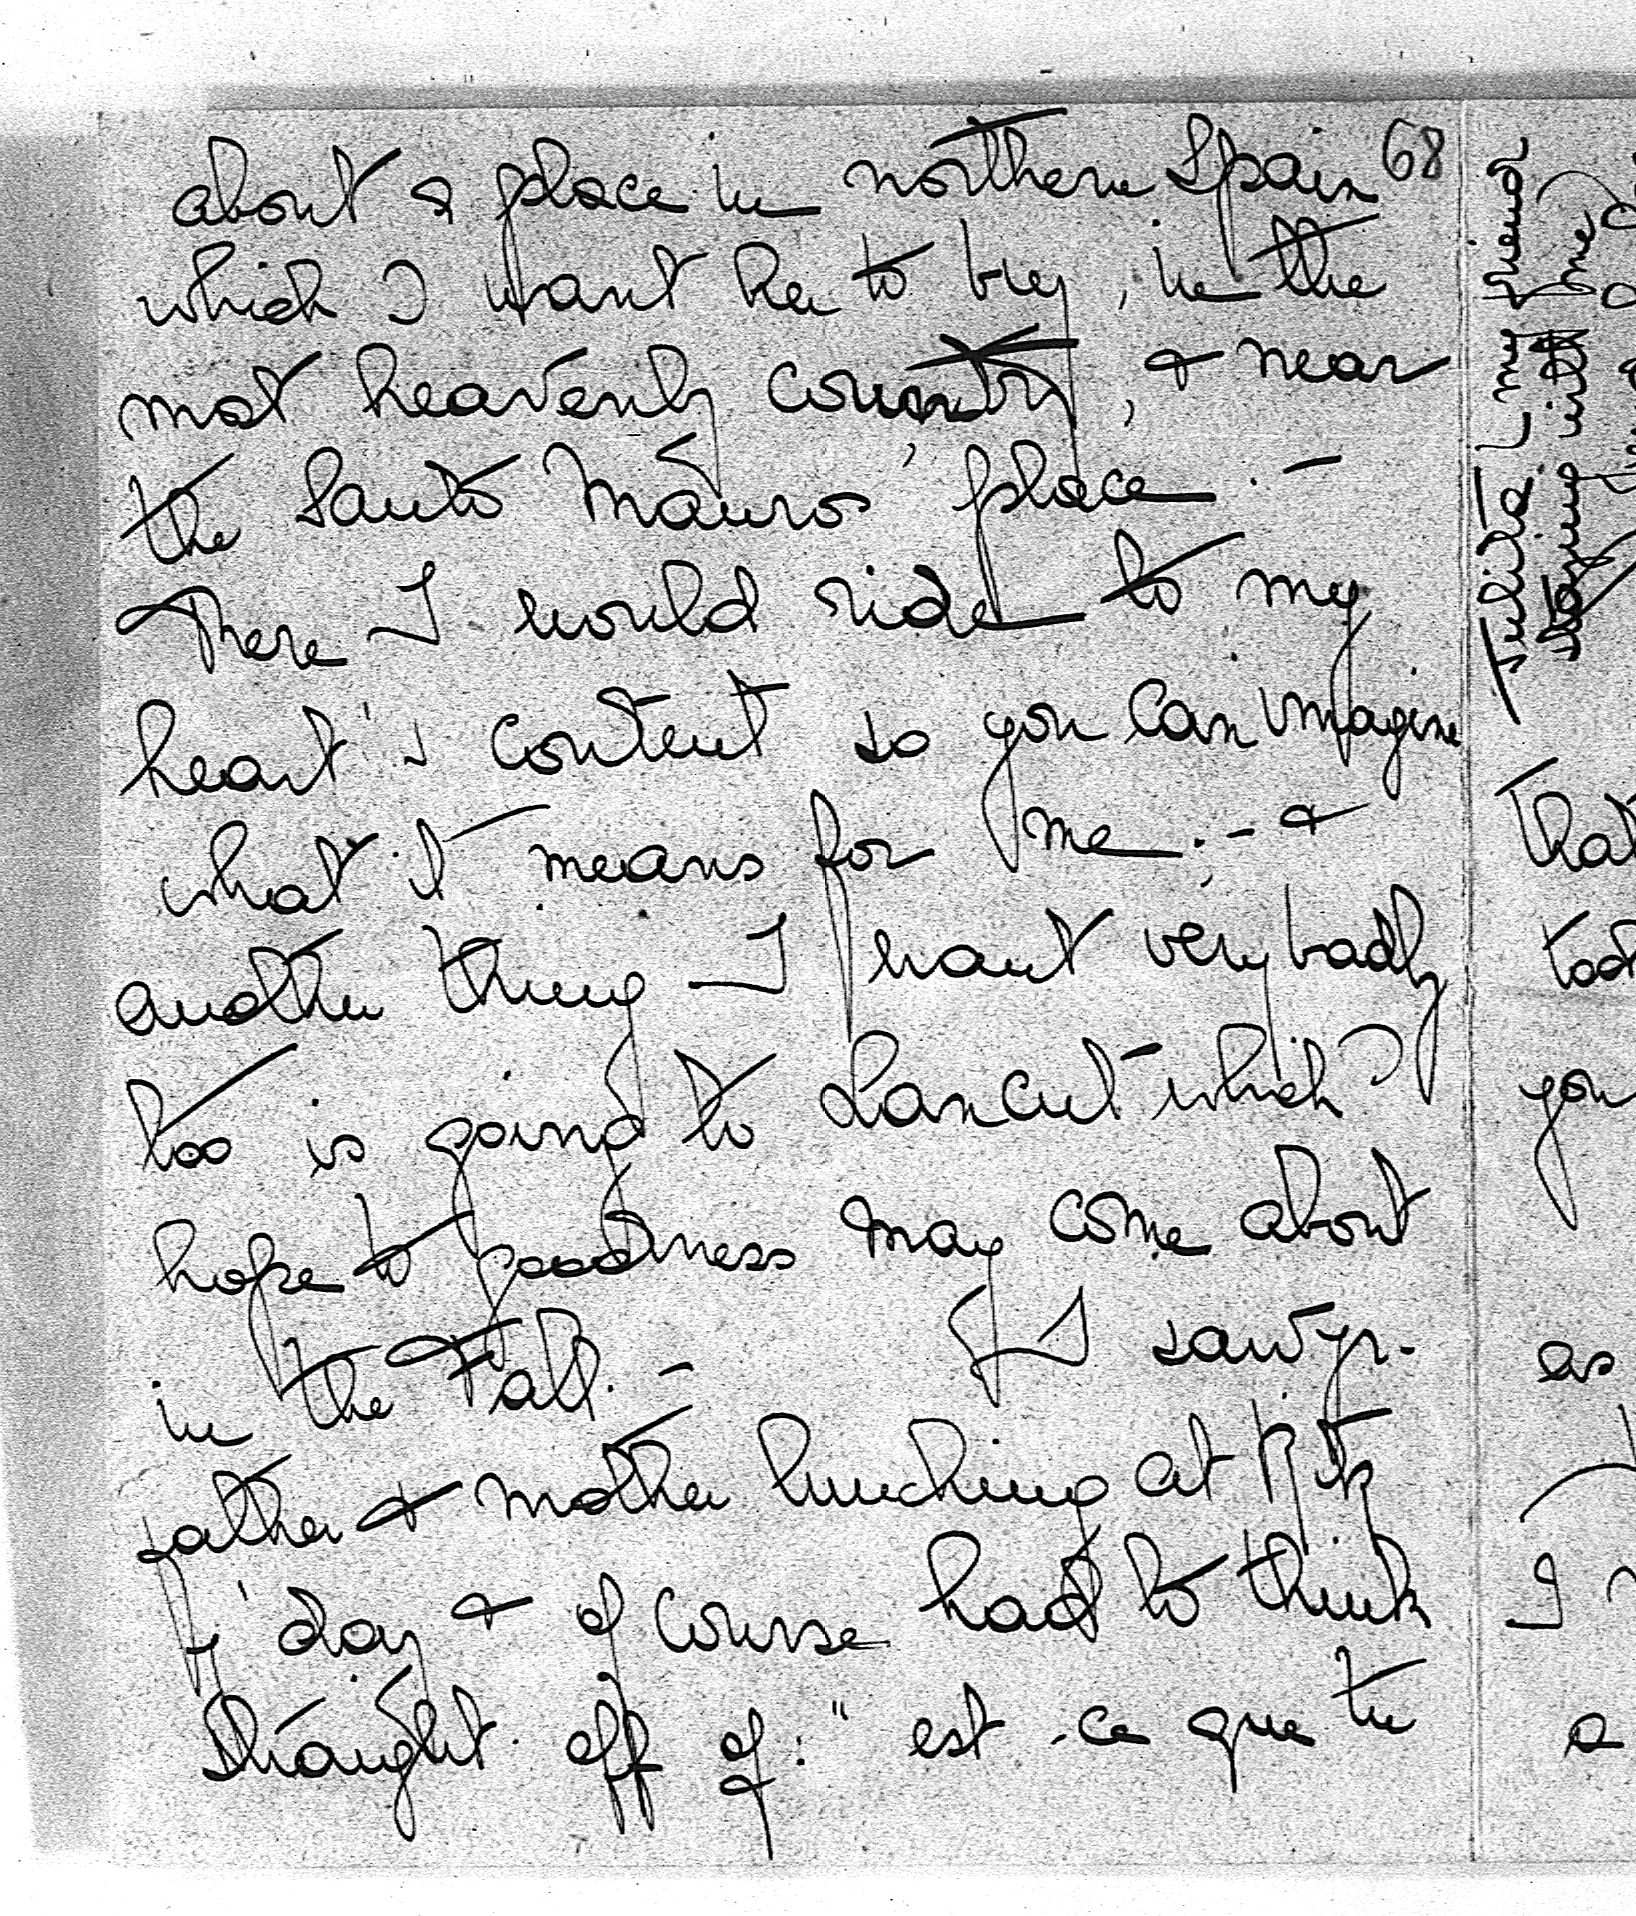 68
about a place in northern Spain
which I want her to buy, in the
most heavenly country, & near
the Santo Mauros' place. -
There I would ride to my
heart's content so you can imagine
what it means for me. - &
another thing I want very badly
too is going to Lancut which I
hope to goodness may come about
in the Fall. - I saw yr.
father & mother lunching at Ritz
day & of course had to think
straight off of: "est-ce que tu
my
me
That
you
as
I
a